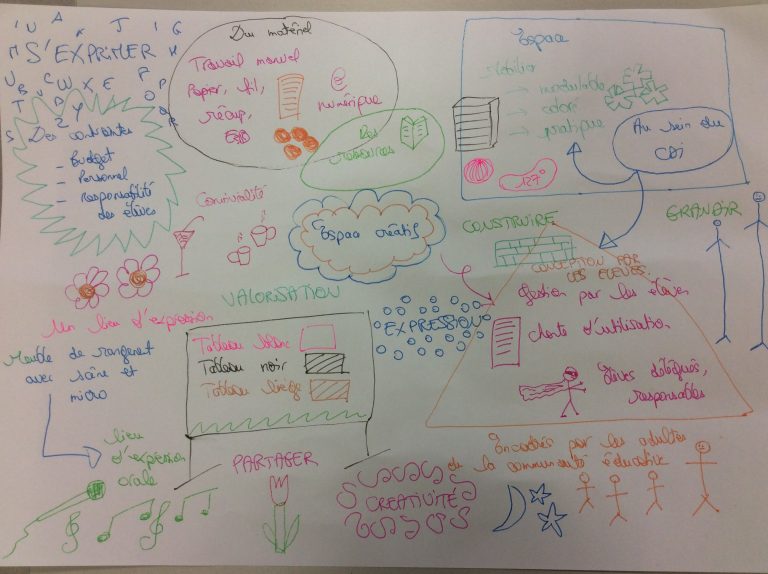 S'EXPRIMER
Du matériel
Travail manuel
Papier, fil,
récup,
@
numérique
Des
ressources
Espace
Mobilier
→ modulable
→ coloré
→ pratique
127°
Au sein du
CDI
Des contraintes
- Budget
- Personnel
- Responsabilité
des élèves
Convivialité
Espace créatif
CONSTRUIRE
GRANDIR
CONCEPTION PAR
LES ELEVES.
Gestion par les élèves
charte d'utilisation
élèves délégués,
responsables
Encadrés par les adultes
de la communauté éducative
VALORISATION
Tableau blanc
Tableau noir
Tableau liège
EXPRESSION
Un lieu d'expression
Meuble de rangement
avec scène et
micro
lieu
d'expression
orale
PARTAGER
CREATIVITÉ